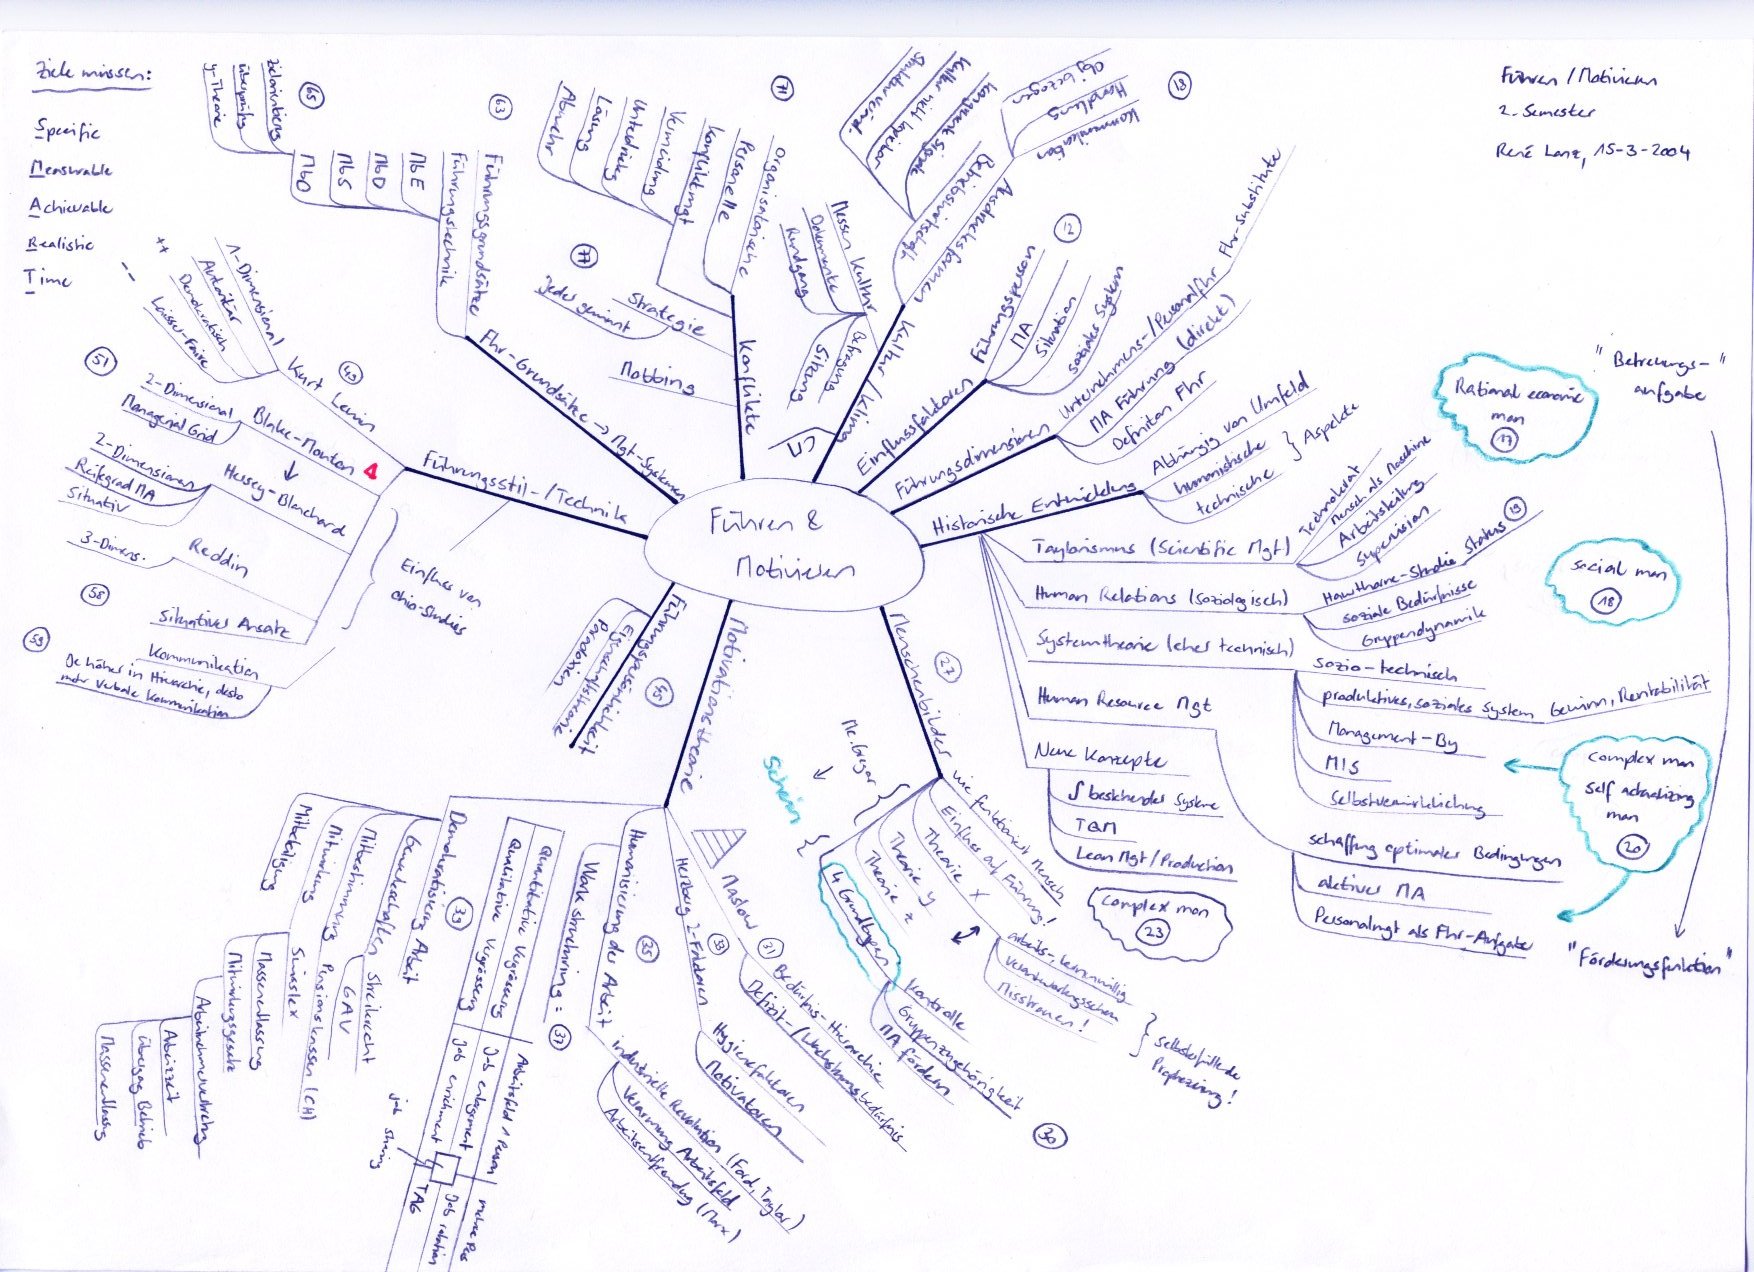 Führen / Motivieren
2. Semester
René Lanz, 15-3-2004
Ziele müssen:
Specific
Measurable
Achievable
Realistic
Time
Führen &
Motivieren
Führungsstil-/Technik
Kurt Lewin
49
1-Dimensional
Autoritär
Demokratisch
Laisser-Faire
++
--
51
Blake-Mouton
2-Dimensional
Managerial Grid
Hersey-Blanchard
2-Dimensionen
Reifegrad MA
Situativ
Reddin
3-Dimens.
58
Situativer Ansatz
59
Kommunikation
Je höher in Hierarchie, desto
mehr verbale Kommunikation
Einfluss von
Ohio-Studies
Fhr-Grundsätze → Mgt-Systemen
63
Führungsgrundsätze
Führungstechnik
MbE
MbD
MbS
MbO
65
Zielorientierung
Überprüfung
y-Theorie
Konflikte
71
Organisatorische
Personelle
Konfliktmgt
Vermeidung
Unterdrückg
Lösung
Abwehr
77
Strategie
jeder gewinnt
Mobbing
Kultur/Klima
CM
Messen Kultur
Dokumente
Rundgang
Befragung
Sitzung
Ausdrucksformen
13
Obj. bezogen
Handlung
Kommunikation
Betriebswirtschaft
Kultur nicht kopierbar
Einflussfaktoren
12
Führungsperson
MA
Situation
soziales System
Führungsdimensionen
Unternehmens-/Personalfhr
Fhr-Substitute
MA Führung (direkt)
Definition Fhr
Historische Entwicklung
Abhängig von Umfeld
humanistische
technische
} Aspekte
Taylorismus (Scientific Mgt)
Technokrat
Mensch als Maschine
Arbeitsteilung
Supervision
Human Relations (soziologisch)
Hawthorne-Studie
Status
19
soziale Bedürfnisse
Gruppendynamik
Systemtheorie (eher technisch)
Sozio-technisch
produktives, soziales System
Gewinn, Rentabilität
Management-By
MIS
Selbstverwirklichung
Human Resource Mgt
schaffung optimaler Bedingungen
aktiver MA
Personalmgt als Fhr-Aufgabe
Neue Konzepte
∫ bestehender Systeme
TQM
Lean Mgt / Production
complex man
23
Rational economic
man
17
social man
18
complex man
self actualizing
man
20
"Betreuungs-"
aufgabe
"Förderungsfunktion"
Menschenbilder
27
wie funktioniert Mensch
Einfluss auf Führung!
Mc.Gregor
Theorie X
Theorie y
Theorie z
arbeits-, lernunwillig
Verantwortungsscheu
Misstrauen!
Selbsterfüllende
Prophezeiung!
Schein
4 Grundtypen
Kontrolle
Gruppenzugehörigkeit
MA fördern
30
Motivationstheorie
Maslow
31
Bedürfnis-Hierarchie
Defizit-/Wachstumsbedürfnis
Herzberg 2-Faktoren
33
Hygienefaktoren
Motivatoren
Humanisierung der Arbeit
35
Industrielle Revolution (Ford, Taylor)
Verarmung Arbeitsfeld
Arbeitsentfremdung (Marx)
Work structuring =
37
Quantitative Vergrösserg
Qualitative Vergrösserg
Arbeitsfeld 1 Person
mehre Pers
Job enlargement
Job rotation
Job enrichment
TAG
job sharing
Demokratisierg Arbeit
39
Gewerkschaften
Streikrecht
GAV
Mitbestimmung
Pensionskassen (CH)
Mitwirkung
Swisslex
Massenentlassung
Mitwirkungsgesetz
Arbeitnehmervertretung
Arbeitszeit
Übergang Betrieb
Massenentlassung
Mitbeteiligung
Führungspersönlichkeit
45
Eigenschaftstheorie
Paradoxien